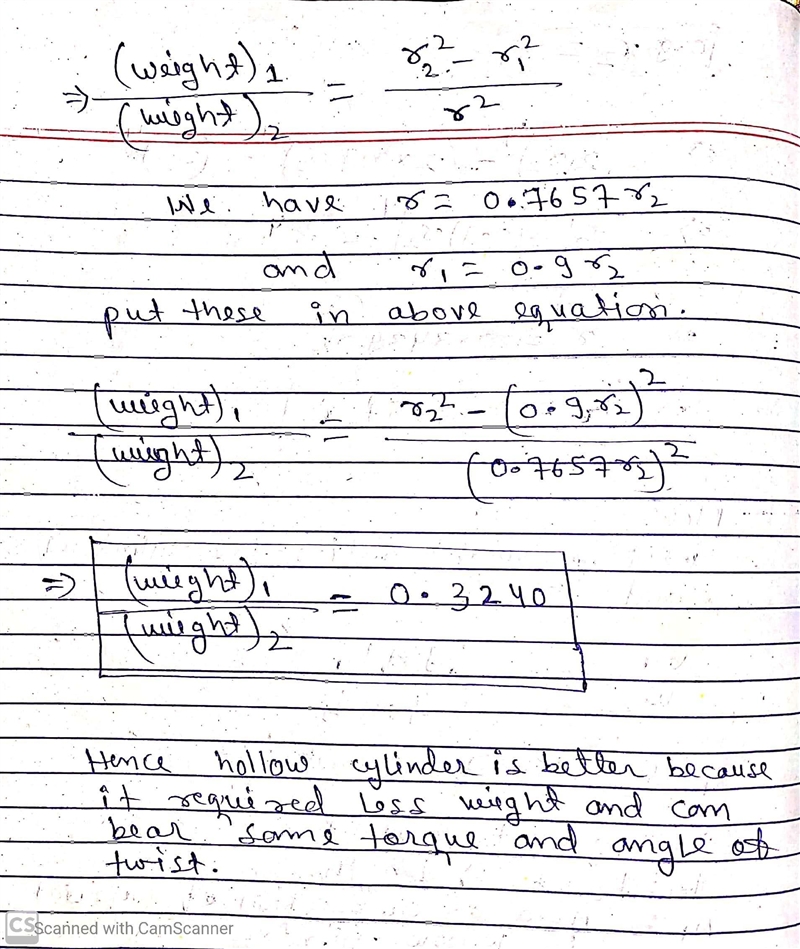 ⇒ (weight)1 / (weight)2 = r2² - r1² / r²
We have r = 0.7657 r2
and r1 = 0.9 r2
put these in above equation.
(weight)1 / (weight)2 = r2² - (0.9 r2)² / (0.7657 r2)²
⇒ (weight)1 / (weight)2 = 0.3240
Hence hollow cylinder is better because
it required less weight and can
bear same torque and angle of
twist.
CS Scanned with CamScanner